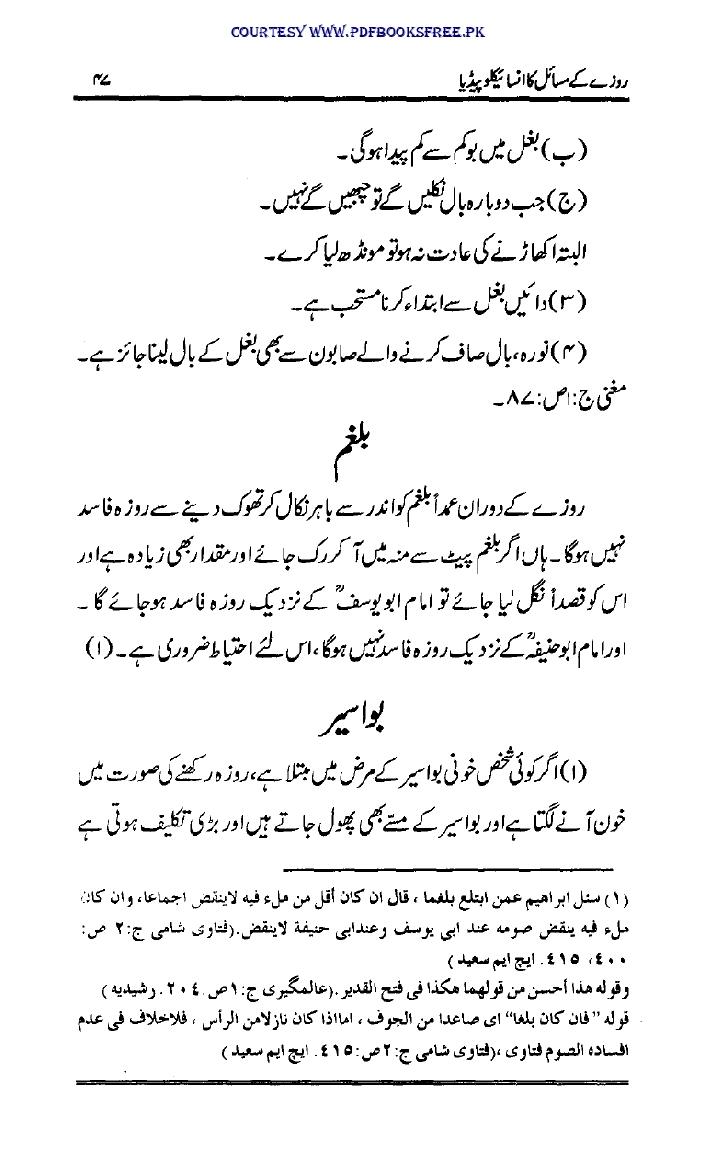 COURTESY WWW.PDFBOOKSFREE.PK
روزے کے مسائل کا انسائیکلوپیڈیا ۴۷
(ب) بغل میں بو کم سے کم پیدا ہوگی۔
(ج) جب دوبارہ بال نکلیں گے تو چبھیں گے نہیں۔
البتہ اکھاڑنے کی عادت نہ ہو تو مونڈھ لیا کرے۔
(۳) دائیں بغل سے ابتداء کرنا مستحب ہے۔
(۴) نورہ، بال صاف کرنے والے صابون سے بھی بغل کے بال لینا جائز ہے۔
مغنی ج:۱ص:۸۷۔
بلغم
روزے کے دوران عمداً بلغم کو اندر سے باہر نکال کر تھوک دینے سے روزہ فاسد
نہیں ہوگا۔ ہاں اگر بلغم پیٹ سے منہ میں آ کر رک جائے اور مقدار بھی زیادہ ہے اور
اس کو قصداً نگل لیا جائے تو امام ابو یوسفؒ کے نزدیک روزہ فاسد ہو جائے گا۔
اور امام ابو حنیفہؒ کے نزدیک روزہ فاسد نہیں ہوگا، اس لئے احتیاط ضروری ہے۔(۱)
بواسیر
(۱) اگر کوئی شخص خونی بواسیر کے مرض میں مبتلا ہے، روزہ رکھنے کی صورت میں
خون آنے لگتا ہے اور بواسیر کے مسّے بھی پھول جاتے ہیں اور بڑی تکلیف ہوتی ہے
(۱) سئل ابراهیم عمن ابتلع بلغما ، قال ان کان أقل من ملء فیه لاینقض اجماعا، وان کان
ملء فیه ینقض صومه عند ابی یوسف وعندابی حنیفة لاینقض.(فتاوی شامی ج:۲ ص:
۴۰۰، ۴۱۵. ایچ ایم سعید)
وقوله هذا أحسن من قولهما هکذا فی فتح القدیر.(عالمگیری ج:۱ ص ۲۰۴. رشیدیه)
قوله "فان کان بلغا" ای صاعدا من الجوف ، امااذا کان نازلامن الرأس ، فلاخلاف فی عدم
افساده الصوم فتاوی ،(فتاوی شامی ج:۲ ص:۴۱۵. ایچ ایم سعید)